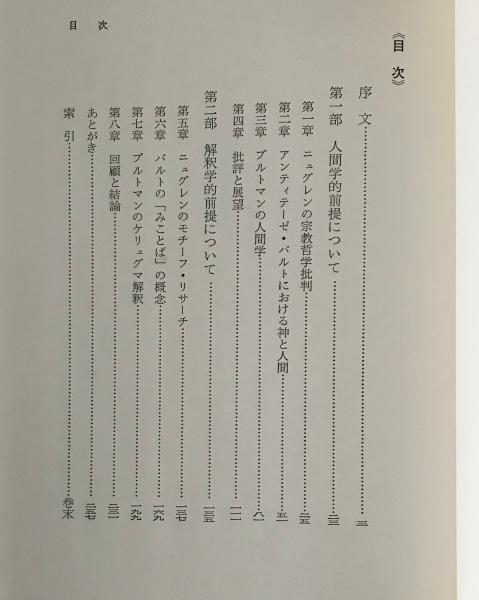 目次
《目次》
序文…………三
第一部 人間学的前提について…………二三
第一章 ニュグレンの宗教哲学批判…………二五
第二章 アンティテーゼ・バルトにおける神と人間…………五一
第三章 ブルトマンの人間学…………八一
第四章 批評と展望…………一一一
第二部 解釈学的前提について…………一三五
第五章 ニュグレンのモチーフ・リサーチ…………一三七
第六章 バルトの「みことば」の概念…………一六九
第七章 ブルトマンのケリュグマ解釈…………一九九
第八章 回顧と結論…………二三一
あとがき…………二五七
索引…………巻末